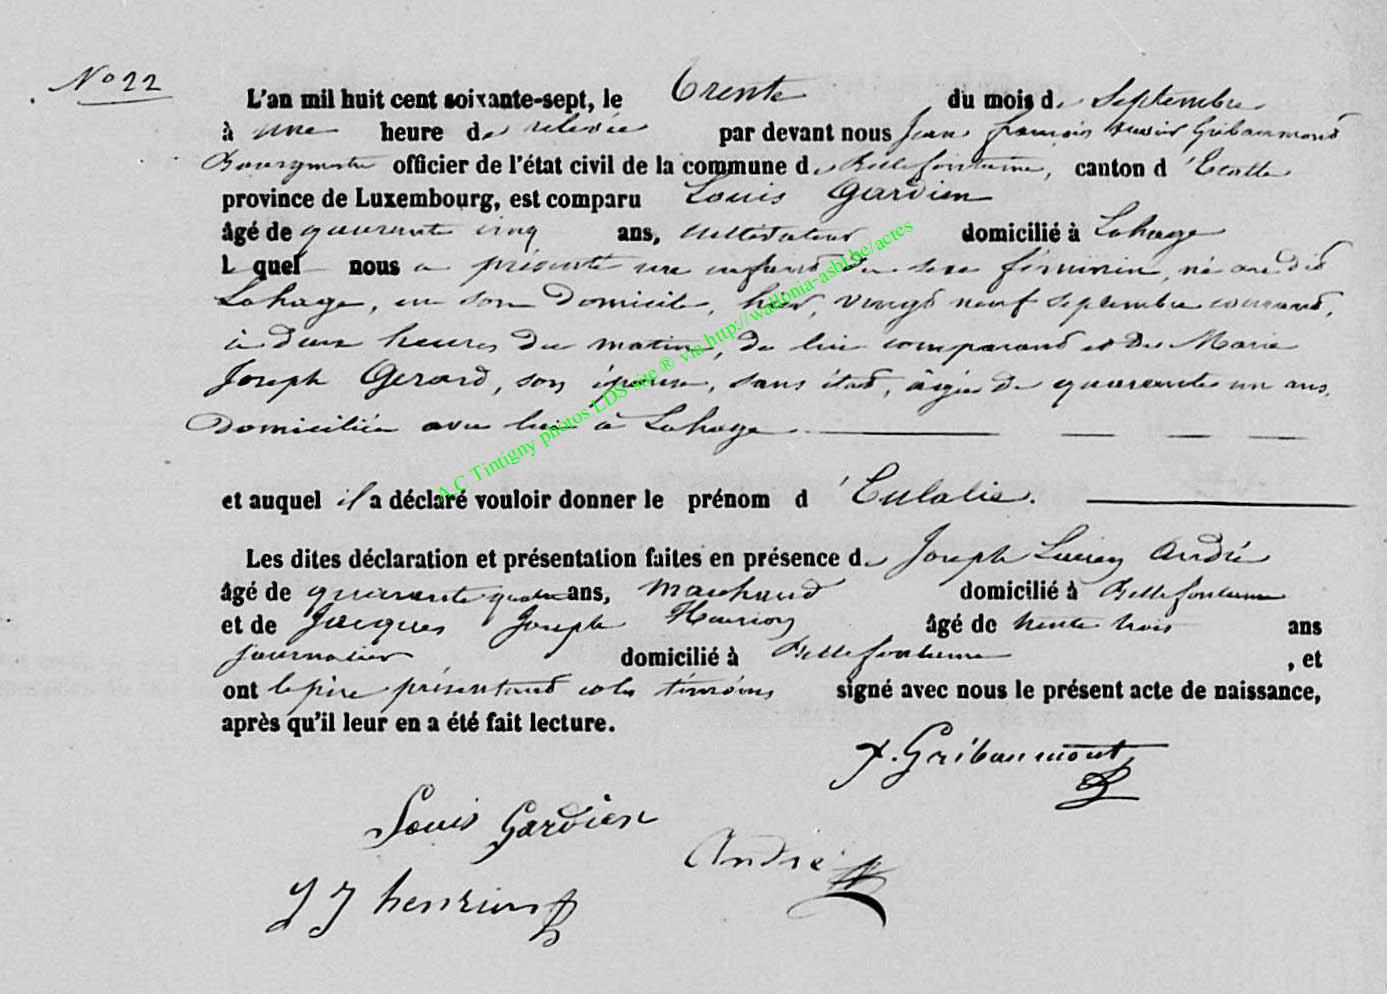 N° 22
L'an mil huit cent soixante-sept, le trente du mois de Septembre
à une heure de relevée par devant nous Jean françois xavier Gribaumond
Bourgmestre officier de l'état civil de la commune de Bellefontaine, canton d'Etalle
province de Luxembourg, est comparu Louis Gardien
âgé de quarante cinq ans, cultivateur domicilié à Lahage
Lequel nous a présenté une enfant du sexe féminin, né au dit
Lahage, en son domicile, hier, vingt neuf septembre courant,
à deux heures du matin, de lui comparant et de Marie
Joseph Gerard, son épouse, sans état, âgée de quarante un ans,
Domiciliée avec lui à Lahage
et auquel il a déclaré vouloir donner le prénom d'Eulalie.
Les dites déclaration et présentation faites en présence de Joseph Lucien André
âgé de quarante quatre ans, marchand domicilié à Bellefontaine
et de Jacques Joseph Henrion âgé de trente trois ans
journalier domicilié à Bellefontaine, et
ont le père présentant et les témoins signé avec nous le présent acte de naissance,
après qu'il leur en a été fait lecture.
A.C Tintigny photos LDS site ® via http://wallonia-asbl.be/actes
x. Gribaumont
Louis Gardien
André
J J henrion